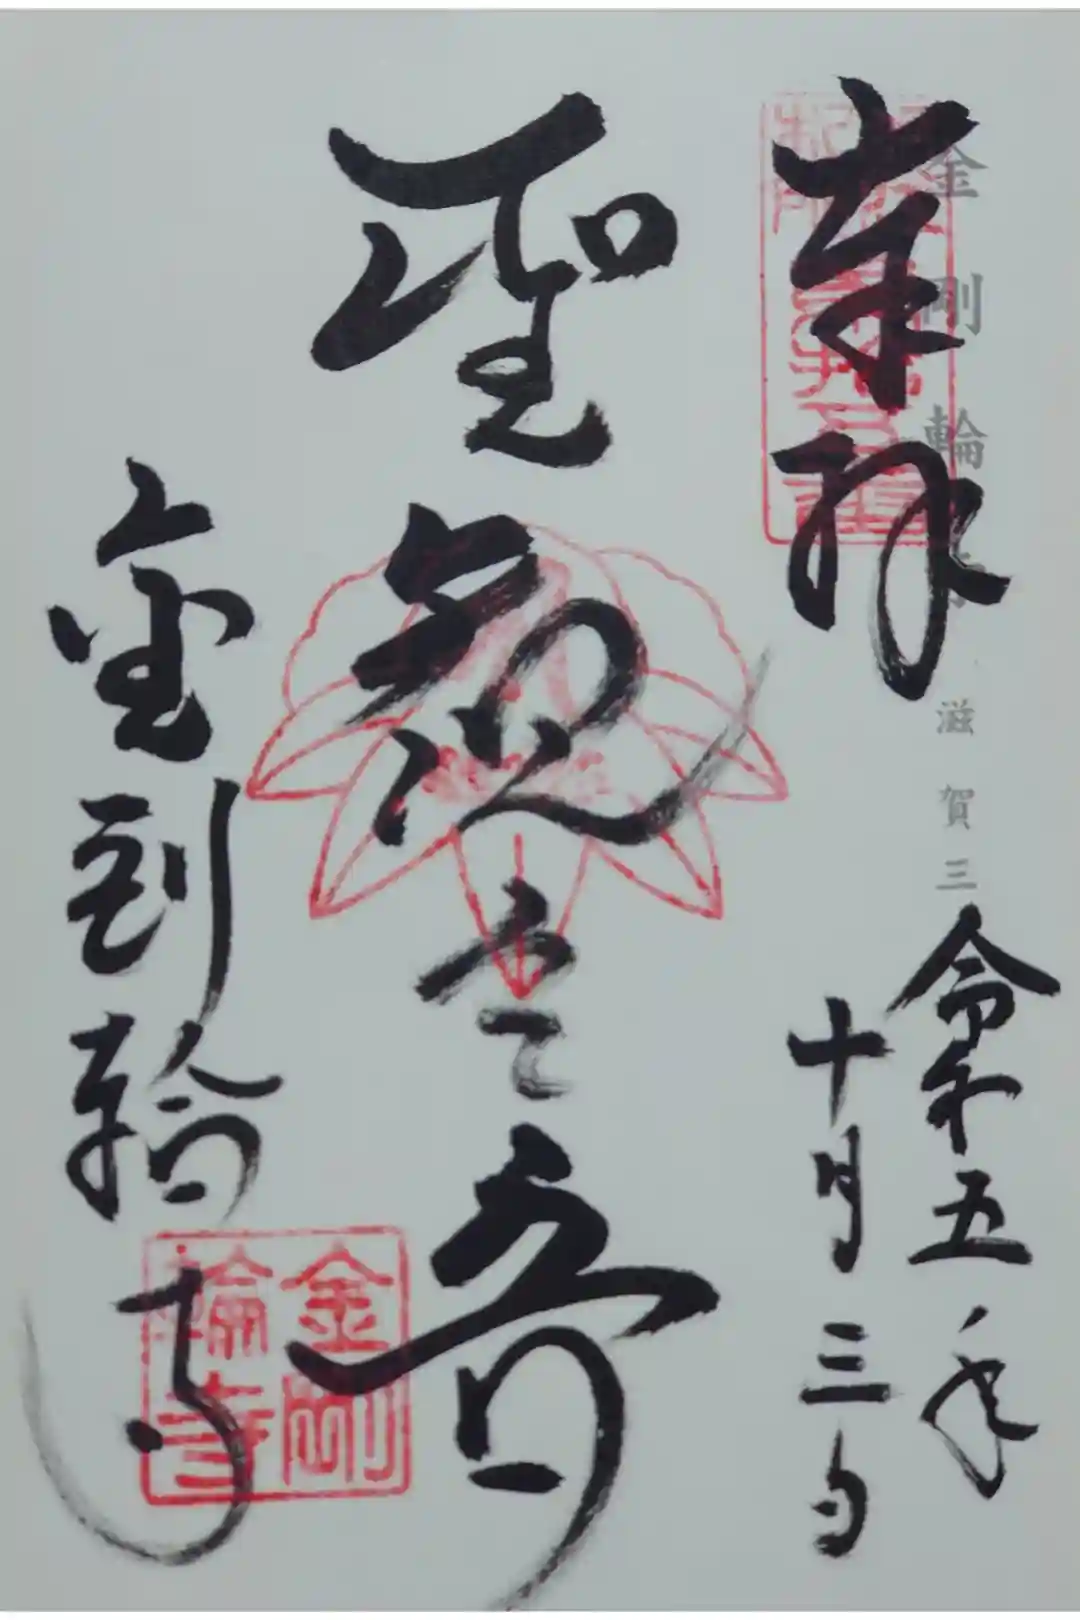 奉拝
金剛輪寺
滋賀三
令和五年
十月三日
聖観世音
金剛輪寺
金剛輪寺